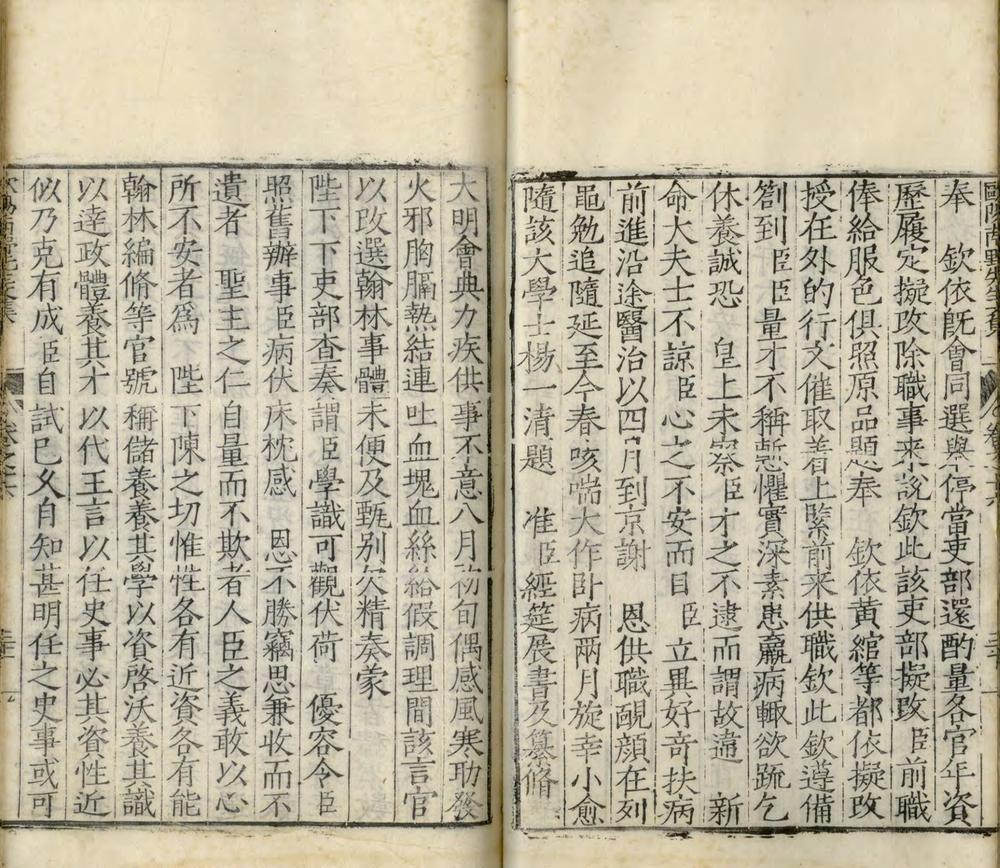 奉　欽依旣會同選與停當吏部還酌量各官年資
歷履定擬改除職事来說欽此該吏部擬改臣前職
俸給服色俱照原品題奉　欽依黄綰等都依擬改
授在外的行文催取着上緊前来供職欽此欽遵備
劄到臣臣量才不稱慙懼實深素患羸病輙欲䟽乞
休養誠恐　皇上未察臣才之不逮而謂故違　新
命大夫士不諒臣心之不安而目　臣立異好竒扶病
前進沿途醫治以四月到京謝　恩供職靦顔在列
黽勉追隨延至今春咳喘大作卧病兩月旋幸小愈
隨該大學士楊一清題　准臣經筵展書及纂修
大明會典力疾供事不意八月初旬偶感風寒助發
火邪胸膈熱結連吐血塊血絲給假調理間該言官
以改選翰林事體未便及甄别欠精奏蒙
陛下下吏部查奏謂臣學識可觀伏荷　優容令臣
照舊辦事臣病伏床枕感　恩不勝竊思兼收而不
遺者　聖主之仁自量而不欺者人臣之義敢以心
所不安者爲　陛下陳之切惟性各有近資各有能
翰林編修等官號稱儲養養其學以資啓沃養其識
以達政體養其才以代王言以任史事必其資性近
似乃克有成臣自試已久自知甚明任之史事或可